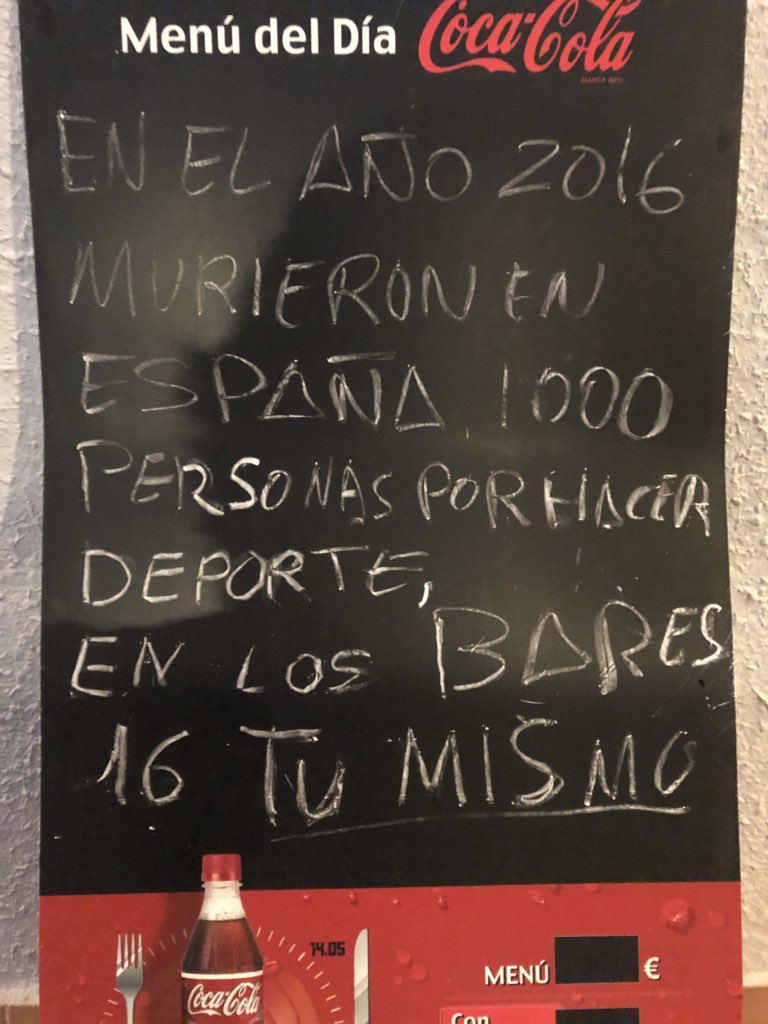 Menú del Día Coca-Cola
MARCA REG.
EN EL AÑO 2016
MURIERON EN
ESPAÑA 1000
PERSONAS POR HACER
DEPORTE,
EN LOS BARES
16 TU MISMO
14.05
Coca-Cola
MENÚ €
Con